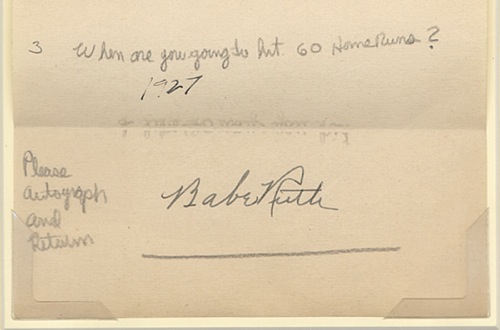 3 When are you going to hit 60 Home Runs?
1927
Please
autograph
and
Return
Babe Ruth